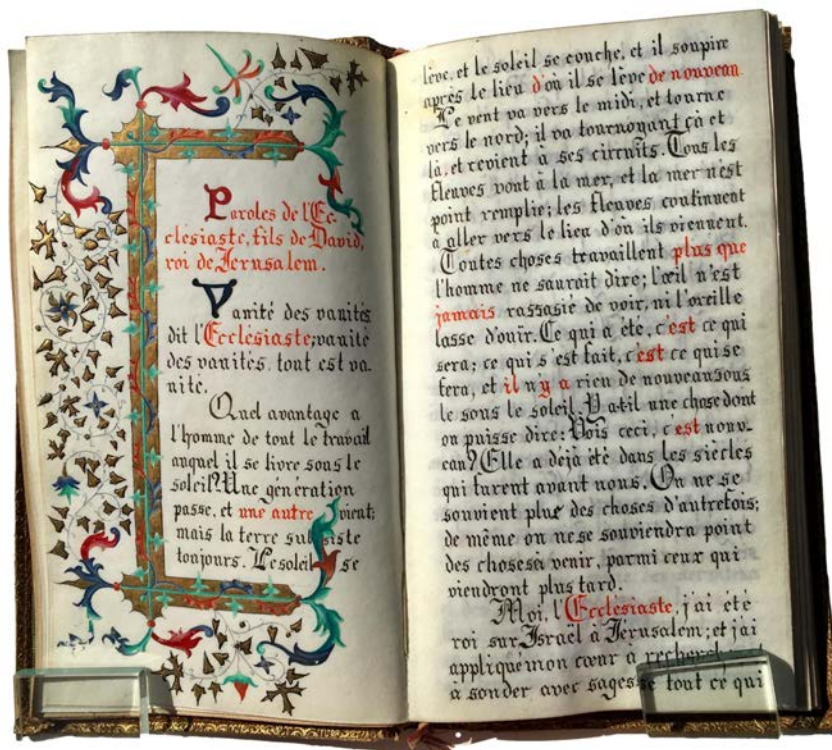 Paroles de l'Ec-
clésiaste, fils de David,
roi de Jerusalem.
Vanité des vanités
dit l'Ecclésiaste; vanité
des vanités. tout est va-
nité.
Quel avantage a
l'homme de tout le travail
auquel il se livre sous le
soleil? Une génération
passe, et une autre vient;
mais la terre subsiste
toujours. Le soleil se
lève, et le soleil se couche, et il soupire
après le lieu d'où il se lève de nouveau.
Le vent va vers le midi, et tourne
vers le nord; il va tournoyant çà et
là, et revient à ses circuits. Tous les
fleuves vont à la mer, et la mer n'est
point remplie; les fleuves continuent
à aller vers le lieu d'où ils viennent.
Toutes choses travaillent plus que
l'homme ne saurait dire; l'œil n'est
jamais rassasié de voir, ni l'oreille
lasse d'ouïr. Ce qui a été, c'est ce qui
sera; ce qui s'est fait, c'est ce qui se
fera, et il n'y a rieu de nouveau sous
le sous le soleil. Y a til une chose dont
on puisse dire: Vois ceci, c'est nouv-
eau? Elle a déjà été dans les siècles
qui furent avant nous. On ne se
souvient plus des choses d'autrefois;
de même on ne se souviendra point
des choses à venir, parmi ceux qui
viendront plus tard.
Moi, l'Ecclésiaste, j'ai été
roi sur Israël à Jérusalem; et j'ai
appliqué mon cœur à
à sonder avec sagesse tout ce qui